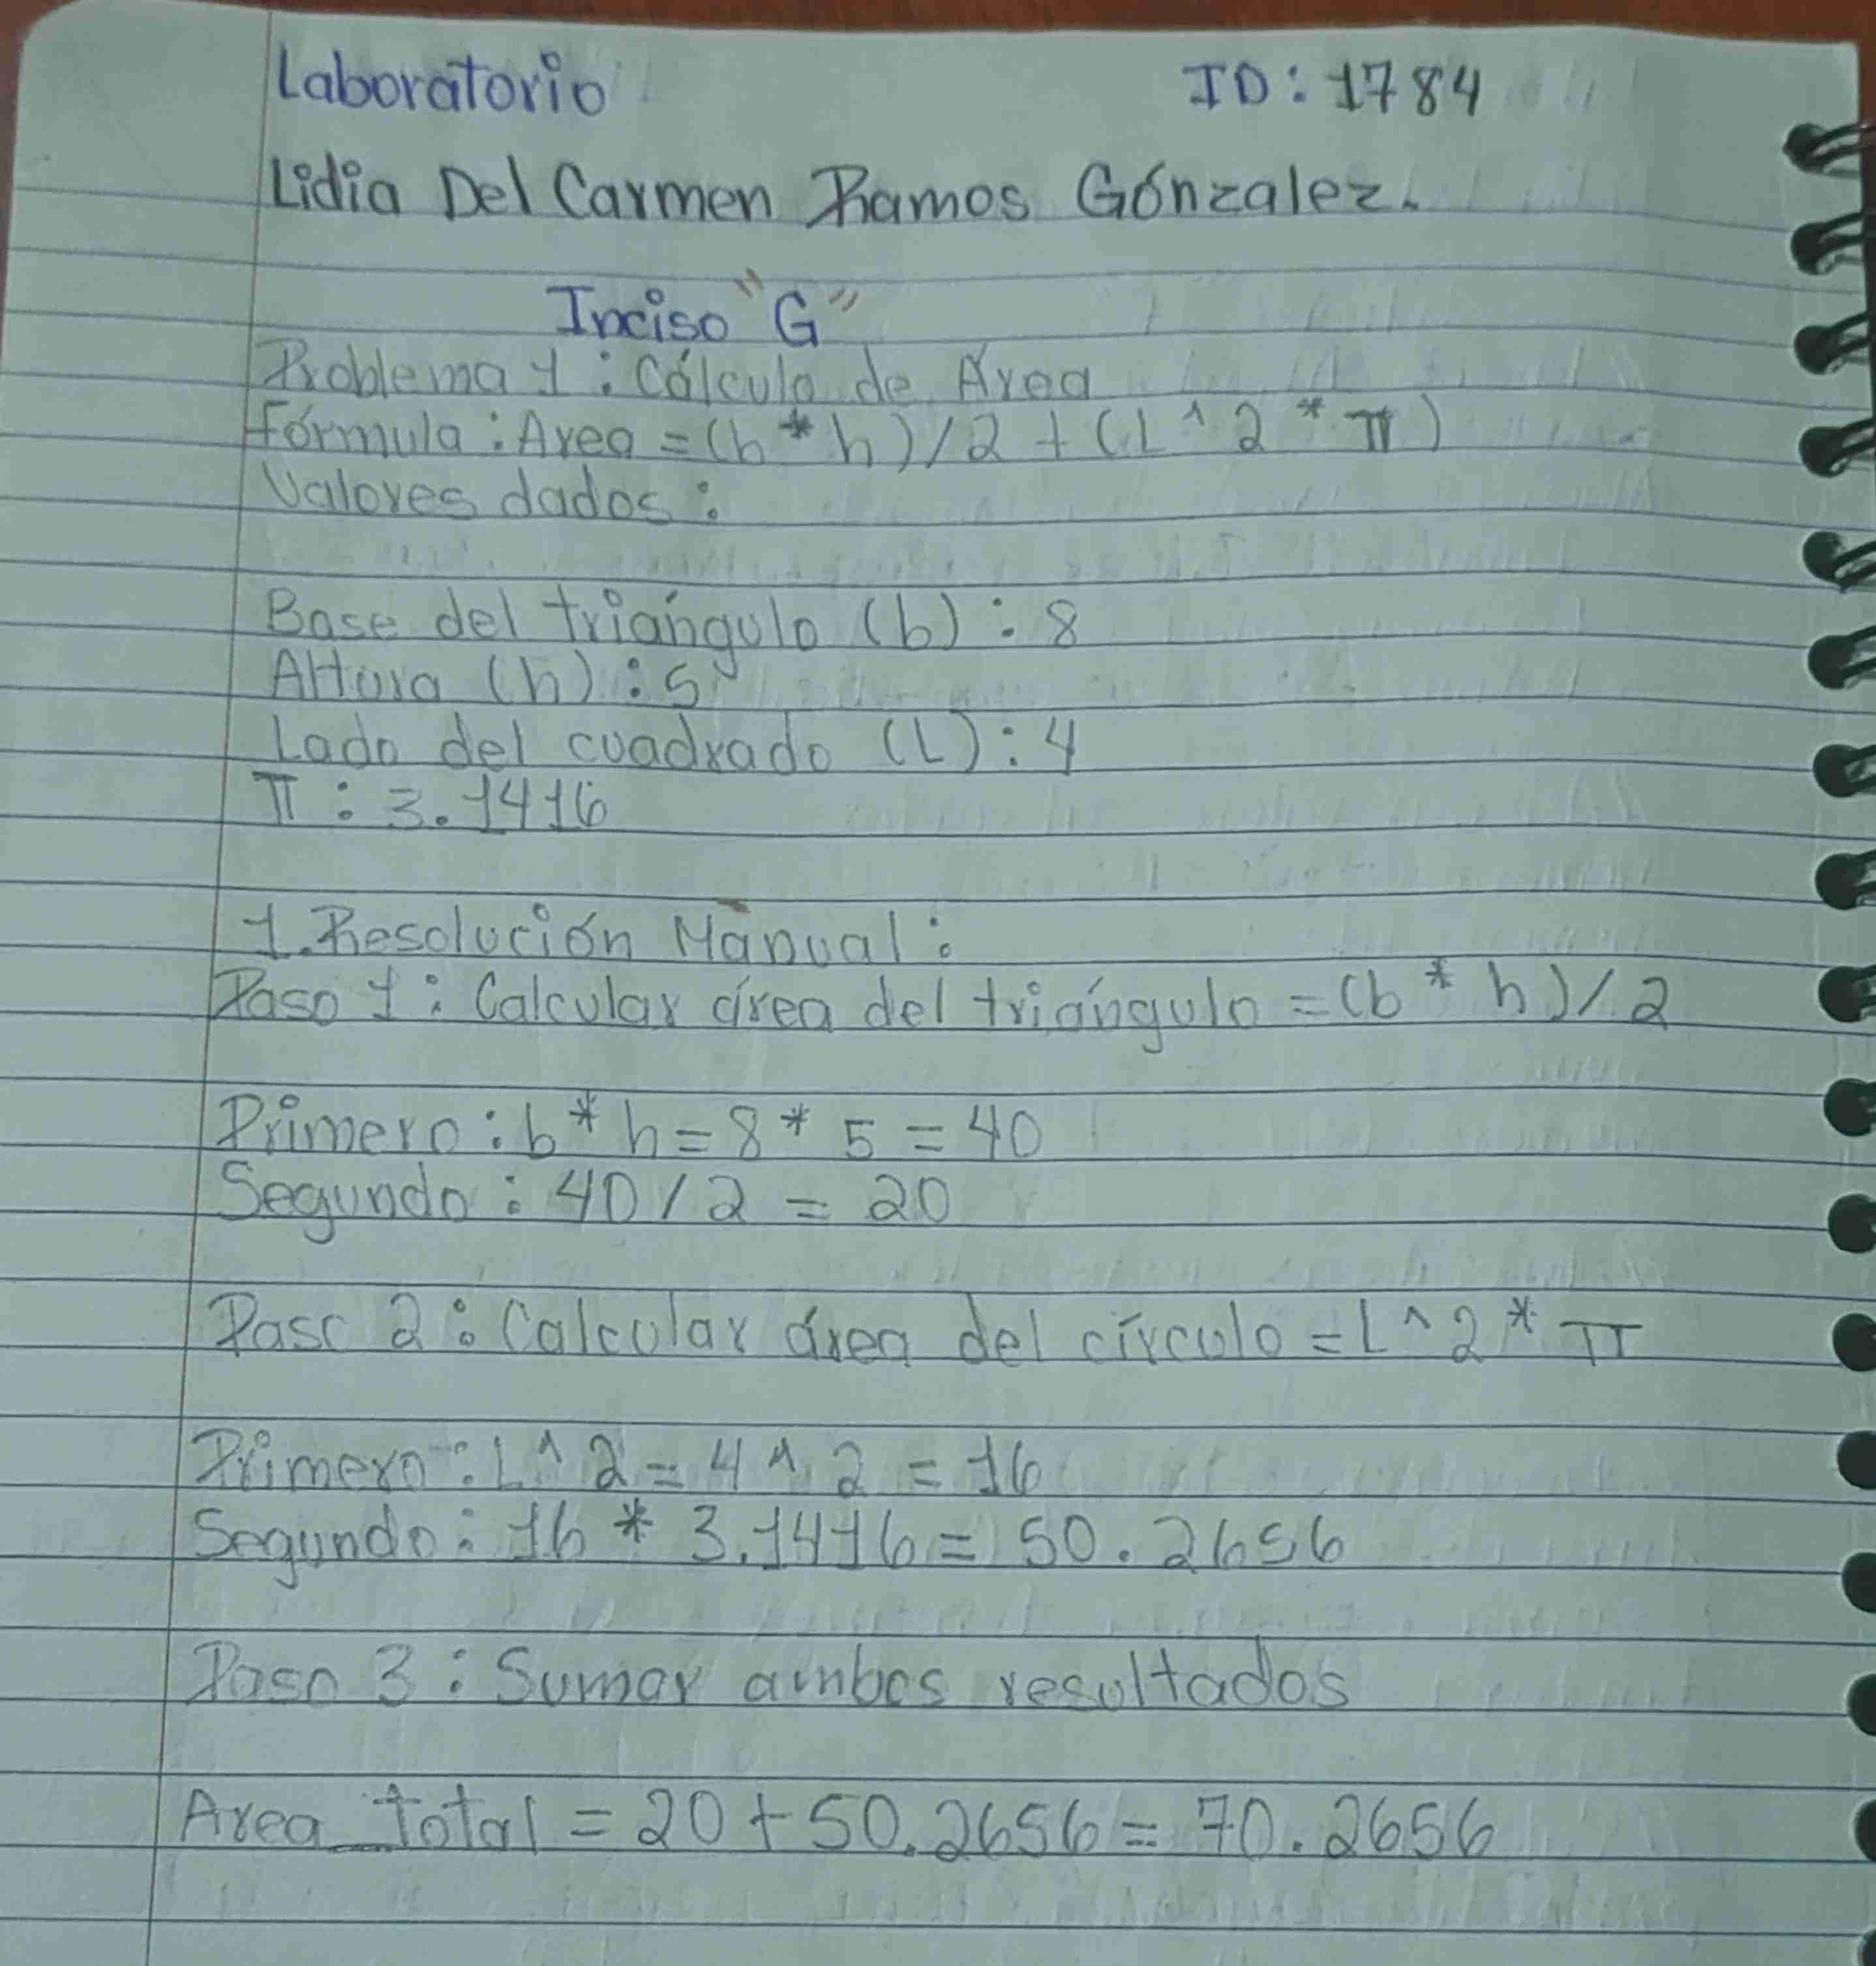 Laboratorio ID: 1784
Lidia Del Carmen Ramos Gónzalez.
Inciso "G"
Problema 1: Cálculo de Área
Fórmula: Area = (b * h) / 2 + (L ^ 2 * π)
Valores dados:
Base del triángulo (b): 8
Altura (h): 5
Lado del cuadrado (L): 4
π: 3.1416
1. Resolución Manual:
Paso 1: Calcular área del triángulo = (b * h) / 2
Primero: b * h = 8 * 5 = 40
Segundo: 40 / 2 = 20
Paso 2: Calcular área del círculo = L ^ 2 * π
Primero: L ^ 2 = 4 ^ 2 = 16
Segundo: 16 * 3.1416 = 50.2656
Paso 3: Sumar ambos resultados
Area_total = 20 + 50.2656 = 70.2656